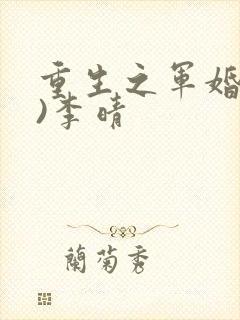 重生之军婚
)李晴
蘭菊秀